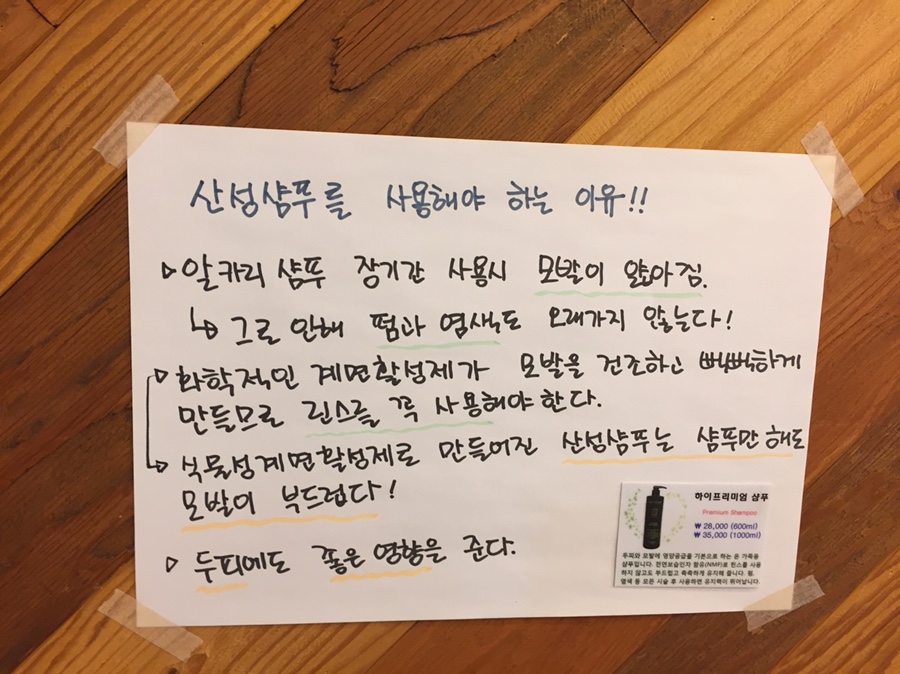 산성샴푸를 사용해야 하는 이유!!
▷알카리 샴푸 장기간 사용시 모발이 얇아짐.
↳ 그로 인해 펌과 염색도 오래가지 않는다!
▷화학적인 계면활성제가 모발을 건조하고 뻑뻑하게
만들므로 린스를 꼭 사용해야한다.
↳식물성계면활성제로 만들어진 산성샴푸는 샴푸만 해도
모발이 부드럽다!
▷두피에도 좋은 영향을 준다.
하이프리미엄 샴푸
Premium Shampoo
₩ 28,000 (600ml)
₩ 35,000 (1000ml)
두피와 모발에 영양공급을 기본으로 하는 온 가족용
샴푸입니다. 천연보습인자 함유(NMF)로 린스를 사용
하지 않고도 부드럽고 촉촉하게 유지해 줍니다. 펌,
염색 등 모든 시술 후 사용하면 유지력이 뛰어납니다.